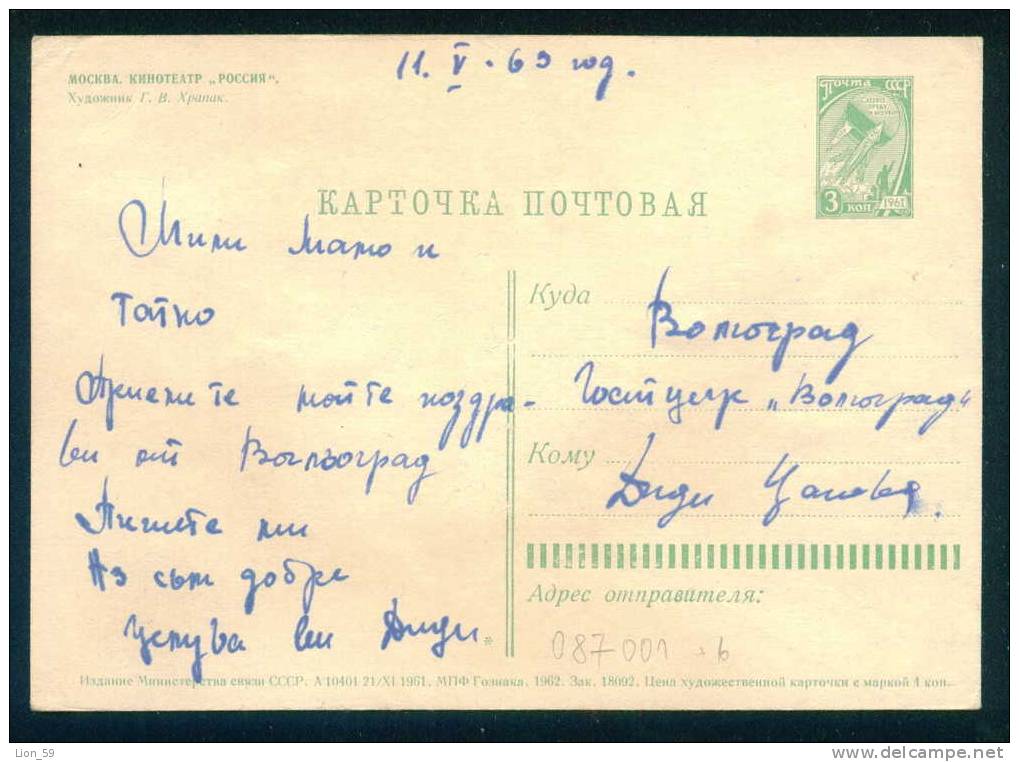 11. V. 63 год.
МОСКВА. КИНОТЕАТР „РОССИЯ“.
Художник Г. В. Храпак.
ПОЧТА СССР
3 КОП
1961
КАРТОЧКА ПОЧТОВАЯ
Мили мамо и
Татко
Приемете моите поздра-
ви от Вогльоград
Пишете ми
Аз съм добре
Целува ви Диди
Куда
Волгоград
"Волгоград"
Кому
Диди Цанова.
Адрес отправителя:
087001 +b
Издание Министерства связи СССР. А 10401 21/XI 1961. МПФ Гознака. 1962. Зак. 18092. Цена художественной карточки с маркой 4 коп.
Lion_59
http://www.delcampe.net